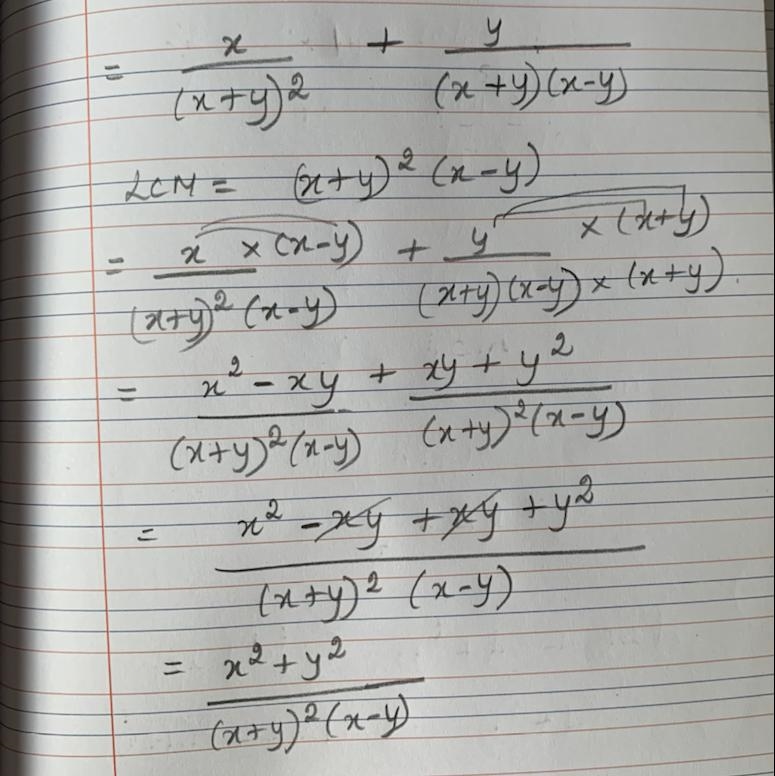 = x/(x+y)² + y/(x+y)(x-y)
LCM = (x+y)² (x-y)
= x × (x-y)/(x+y)² (x-y) + y × (x+y)/(x+y)(x-y) × (x+y)
= x² - xy/(x+y)² (x-y) + xy + y²/(x+y)² (x-y)
= x² - xy + xy + y²/(x+y)² (x-y)
= x² + y²/(x+y)² (x-y)